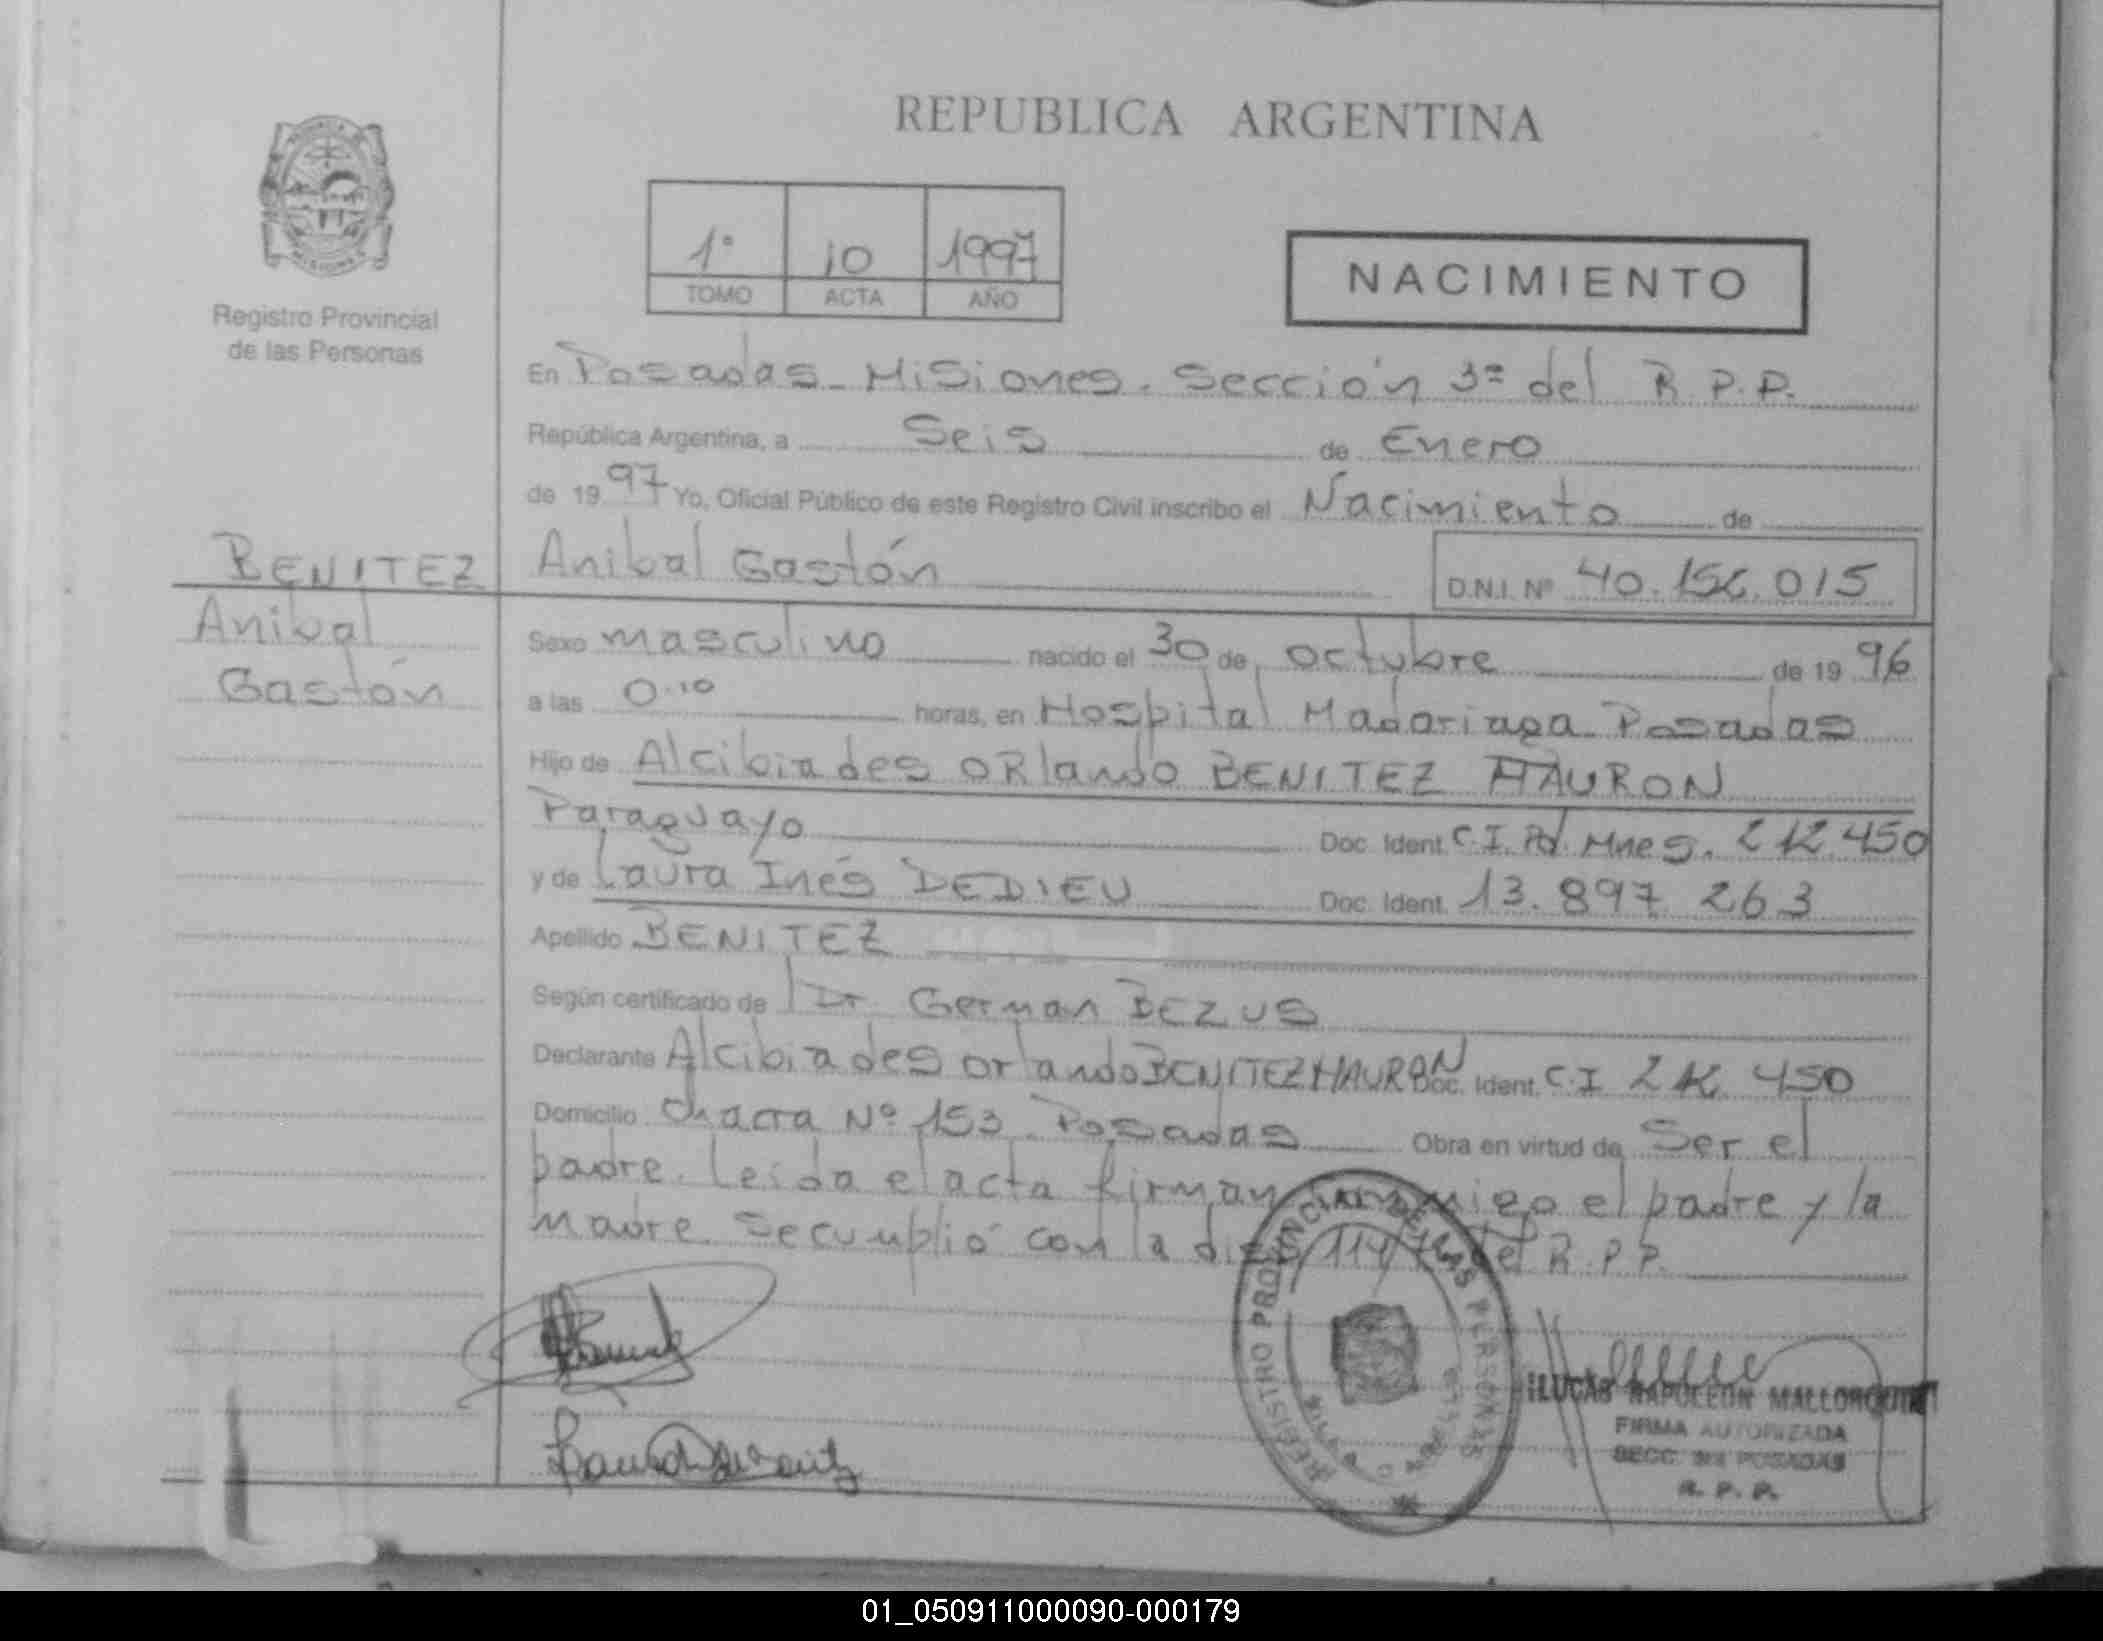 REPUBLICA ARGENTINA
1° 10 1997
TOMO ACTA AÑO
NACIMIENTO
Registro Provincial
de las Personas
En Posadas - Misiones. Sección 3ª del R.P.P.
República Argentina, a Seis de Enero
de 1997 Yo, Oficial Público de este Registro Civil inscribo el Nacimiento de
BENITEZ Anibal Gastón D.N.I. Nº 40.156.015
Anibal
Gastón
Sexo masculino nacido el 30 de octubre de 1996
a las 0.10 horas, en Hospital Madariaga Posadas
Hijo de Alcibiades ORlando BENITEZ HAURON
Paraguayo Doc. Ident. C.I. Mnes. 450
y de Laura Inés DEDIEU Doc. Ident. 13.897.263
Apellido BENITEZ
Según certificado de Dr German BEZUS
Declarante Alcibiades orlando BENITEZ HAURON Doc. Ident. C.I 450
Domicilio Chacra Nº 153 Posadas Obra en virtud de Ser el
padre. Leida el acta firman conmigo el padre y la
madre. Se cumplió con la del R.P.P.
REGISTRO PROVINCIAL DE LAS PERSONAS
LUCAS NAPOLEON MALLORQUIN
FIRMA AUTORIZADA
SECC. POSADAS
R. P. P.
01_050911000090-000179